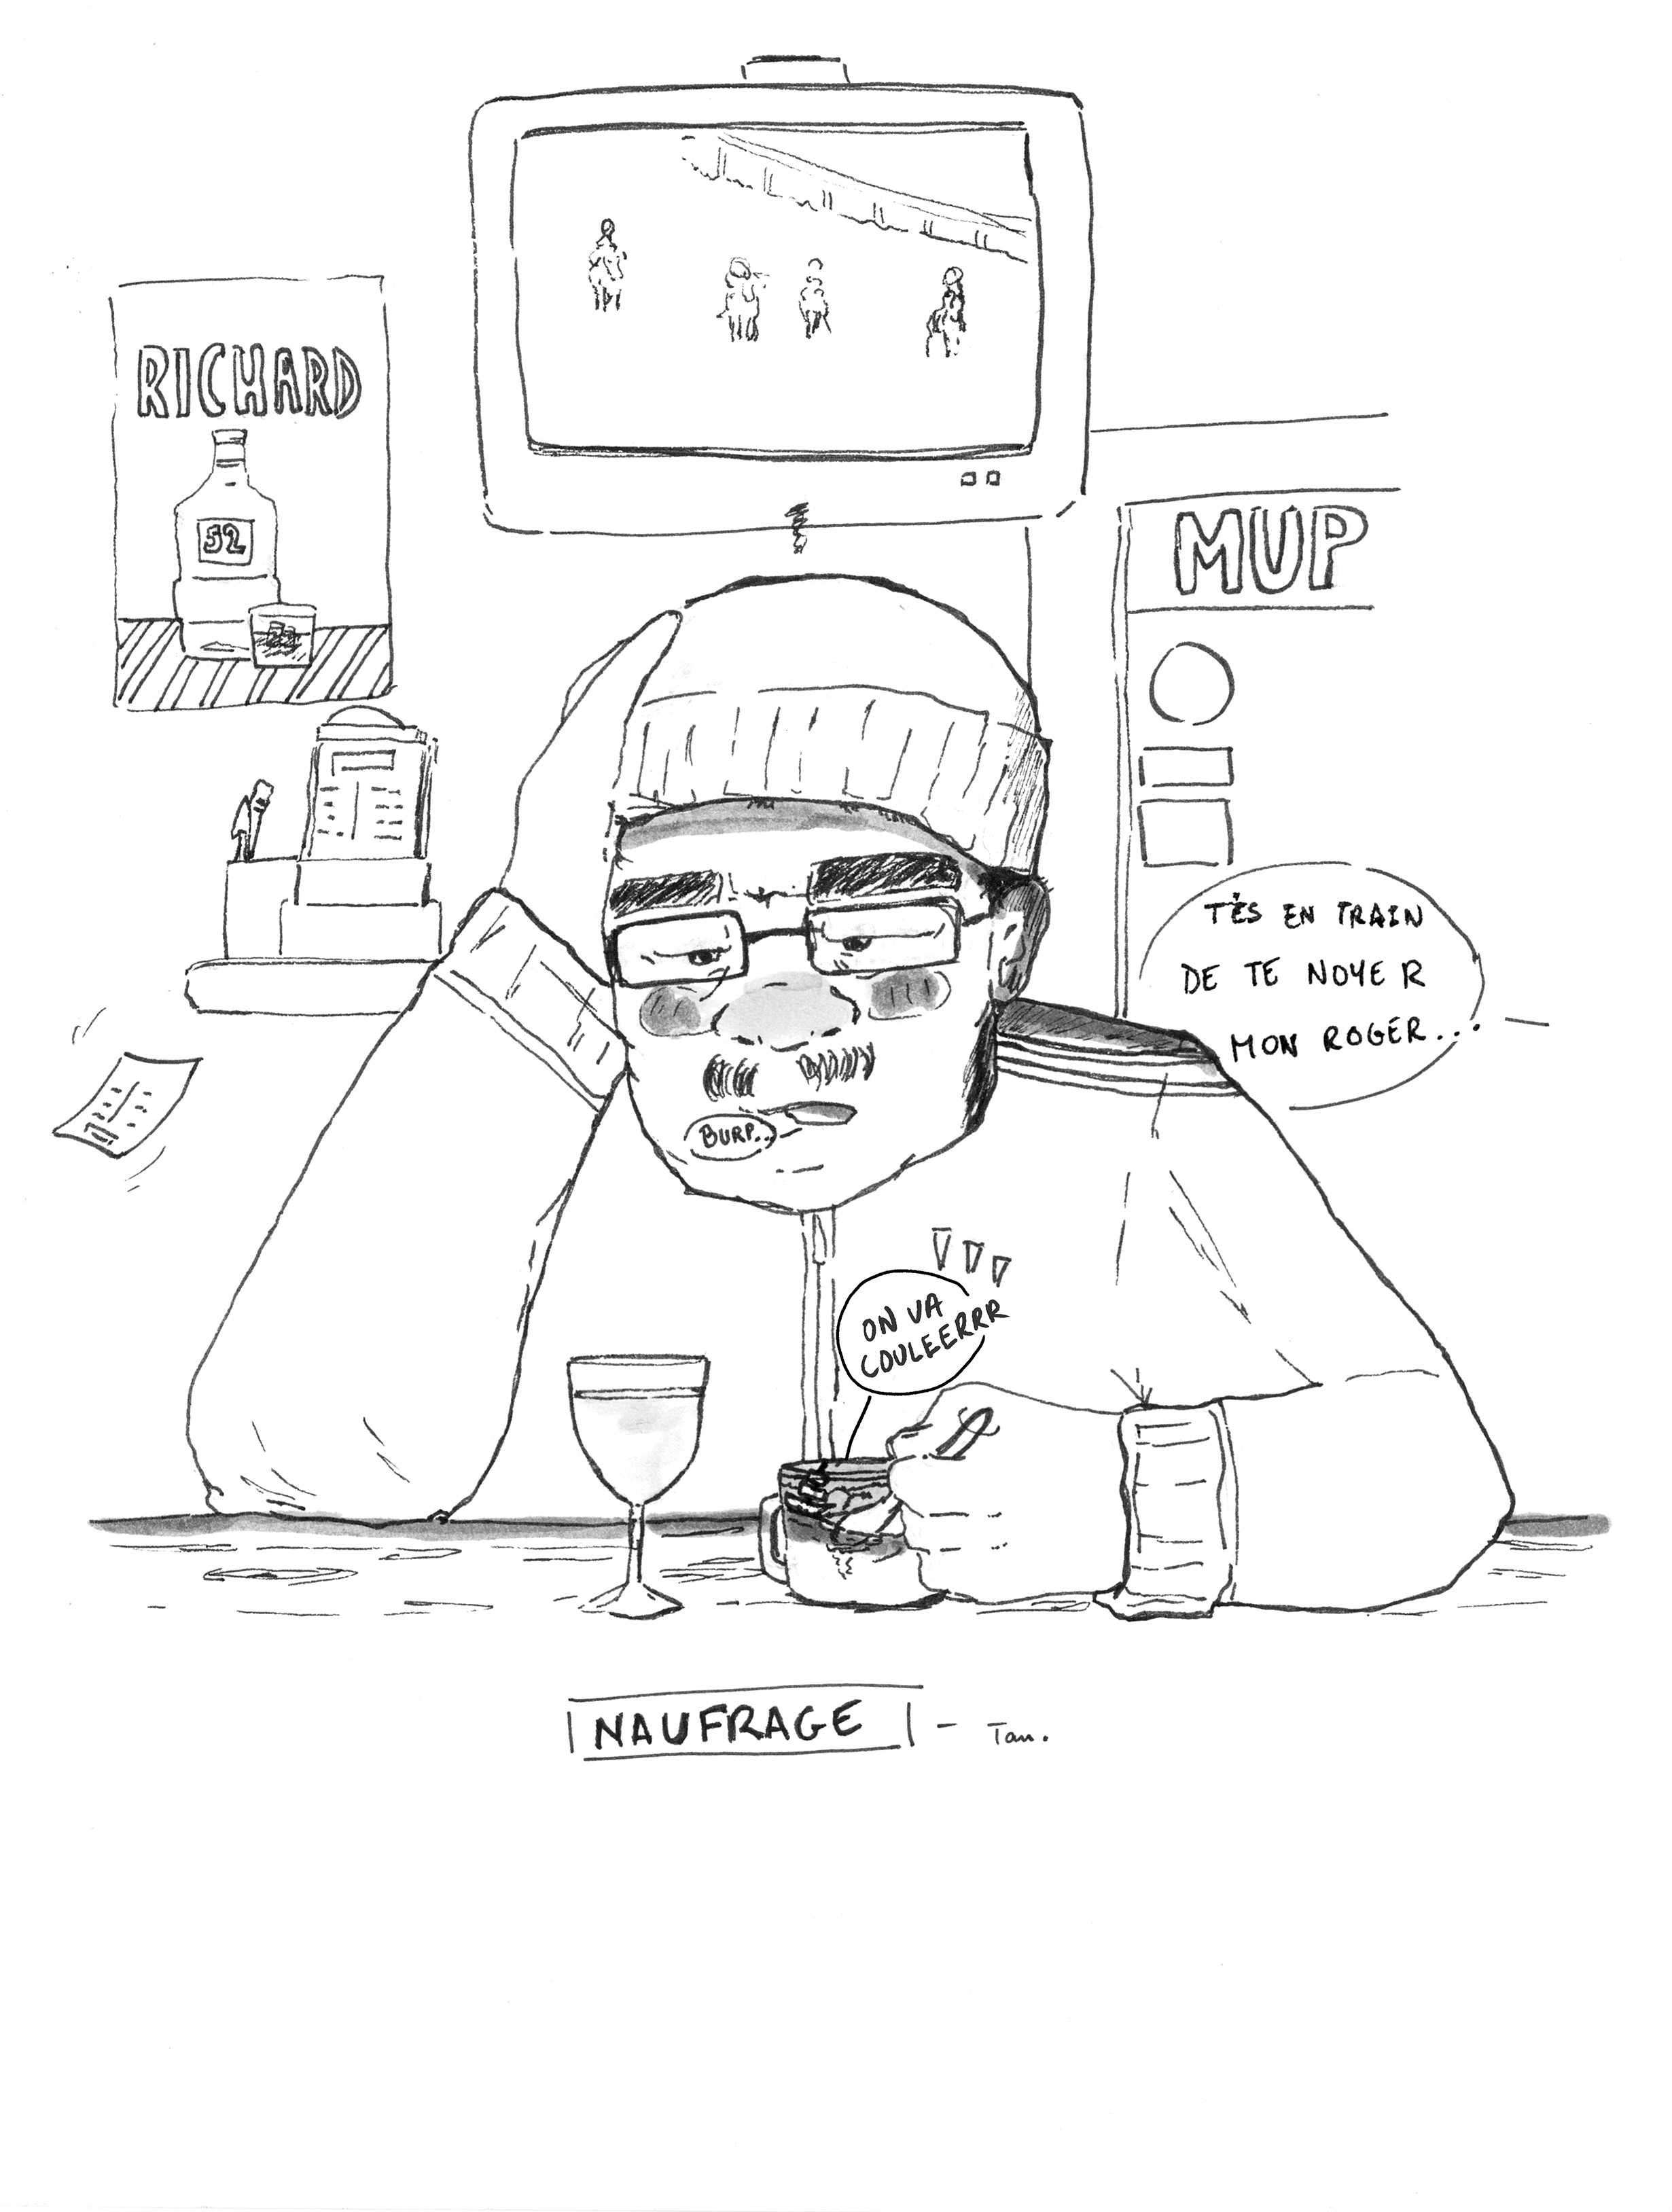 RICHARD
52
MUP
TÉS EN TRAIN
DE TE NOYER
MON ROGER...
BURP..
ON VA
COULEERRR
NAUFRAGE - Tan.